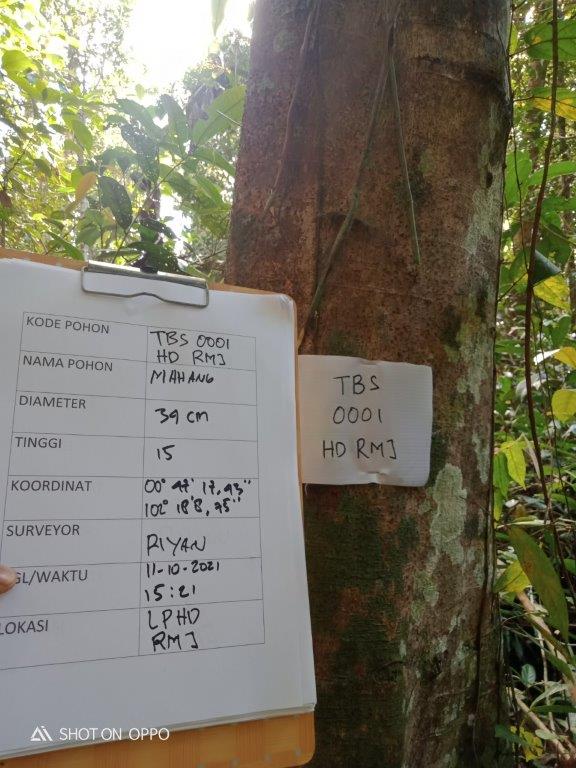 KODE POHON
TBS 0001
HD RMJ
NAMA POHON
MAHANG
DIAMETER
39 cm
TINGGI
15
KOORDINAT
00° 47' 17,43"
102° 18'8,75"
SURVEYOR
RIYAN
GL/WAKTU
11-10-2021
15:21
LOKASI
LPHD
RMJ
TBS
0001
HD RMJ
SHOT ON OPPO